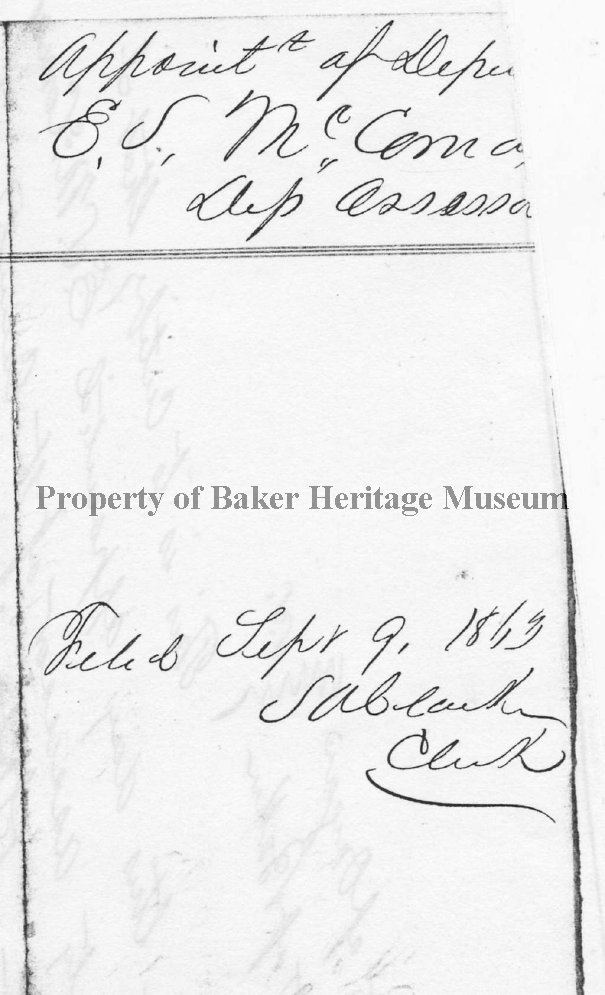 Appoint^t of Depu
E. S. McComa
Dep Assesso
Property of Baker Heritage Museum
Filed Sept 9, 1863
S A Clarke
Clerk